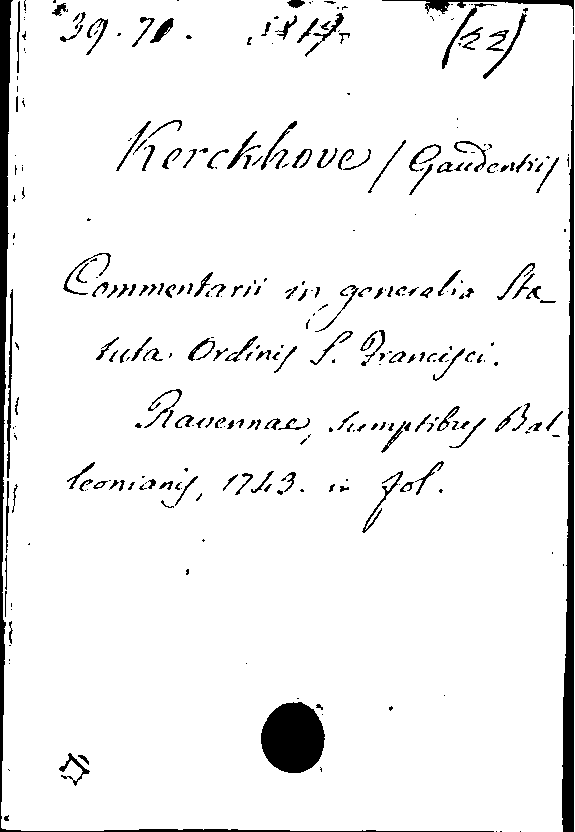 39.71. (22)
Kerckhove / Gaudentii /
Commentarii in generalia Sta_
tuta Ordinis S. Francisci.
Ravennae, sumptibus Bal_
leonianis, 1743. in fol.